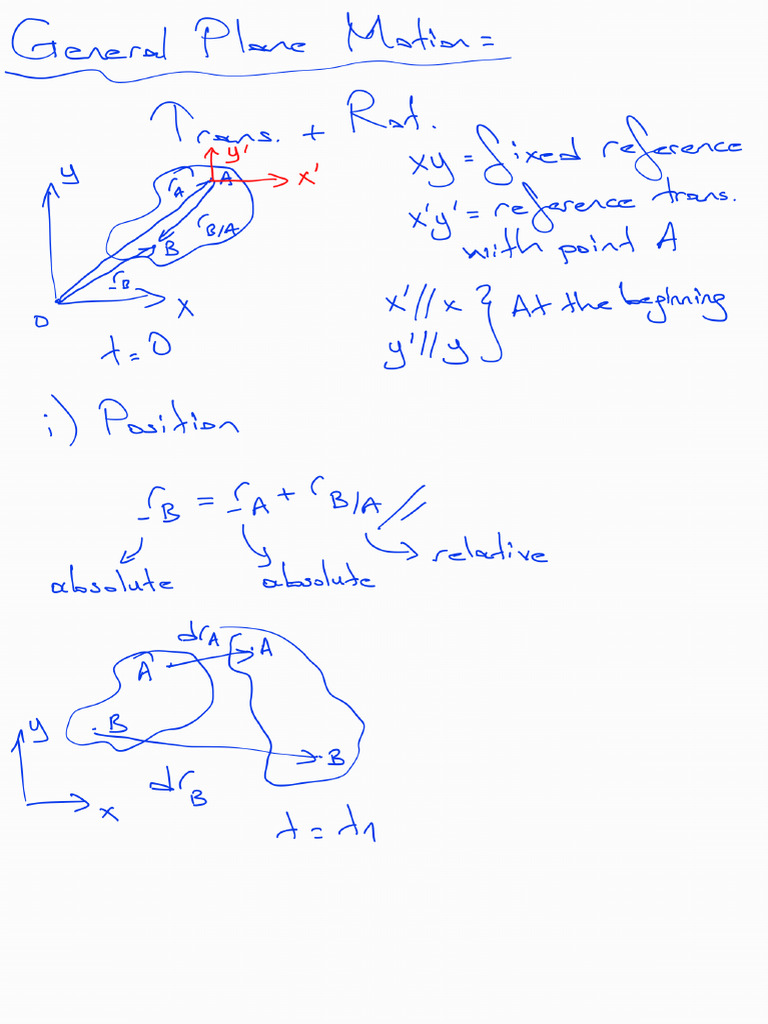 General Plane Motion =
Trans. + Rot.
y
y'
x'
A
r_A
r_B/A
B
r_B
O
x
t = 0
xy = fixed reference
x'y' = reference trans.
with point A
x' // x } At the beginning
y' // y
i) Position
r_B = r_A + r_B/A //
absolute
absolute
relative
dr_A
A
A
B
B
y
x
dr_B
t = t1